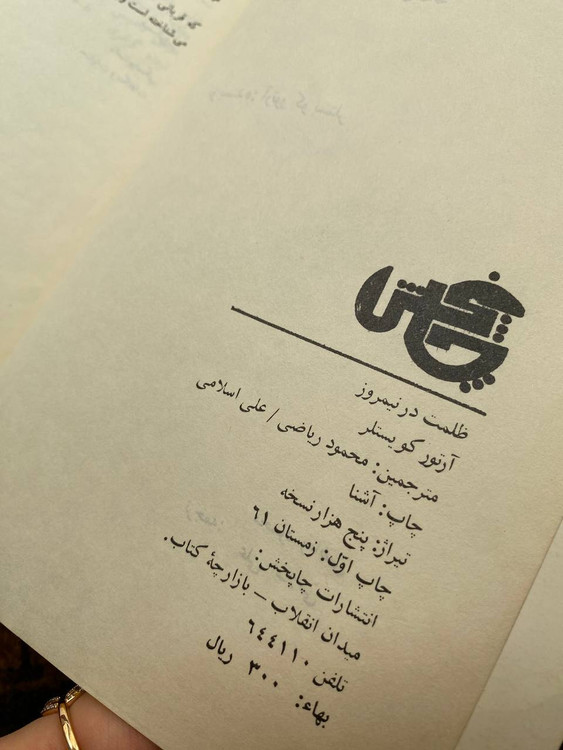 چاپخش
ظلمت در نیمروز
آرتور کویستلر
مترجمین: محمود ریاضی / علی اسلامی
چاپ: آشنا
تیراژ: پنج هزار نسخه
چاپ اوّل: زمستان ٦١
انتشارات چاپخش:
میدان انقلاب – بازارچهٔ کتاب.
تلفن ٦٤٤١١٠
بهاء: ٣٠٠ ریال